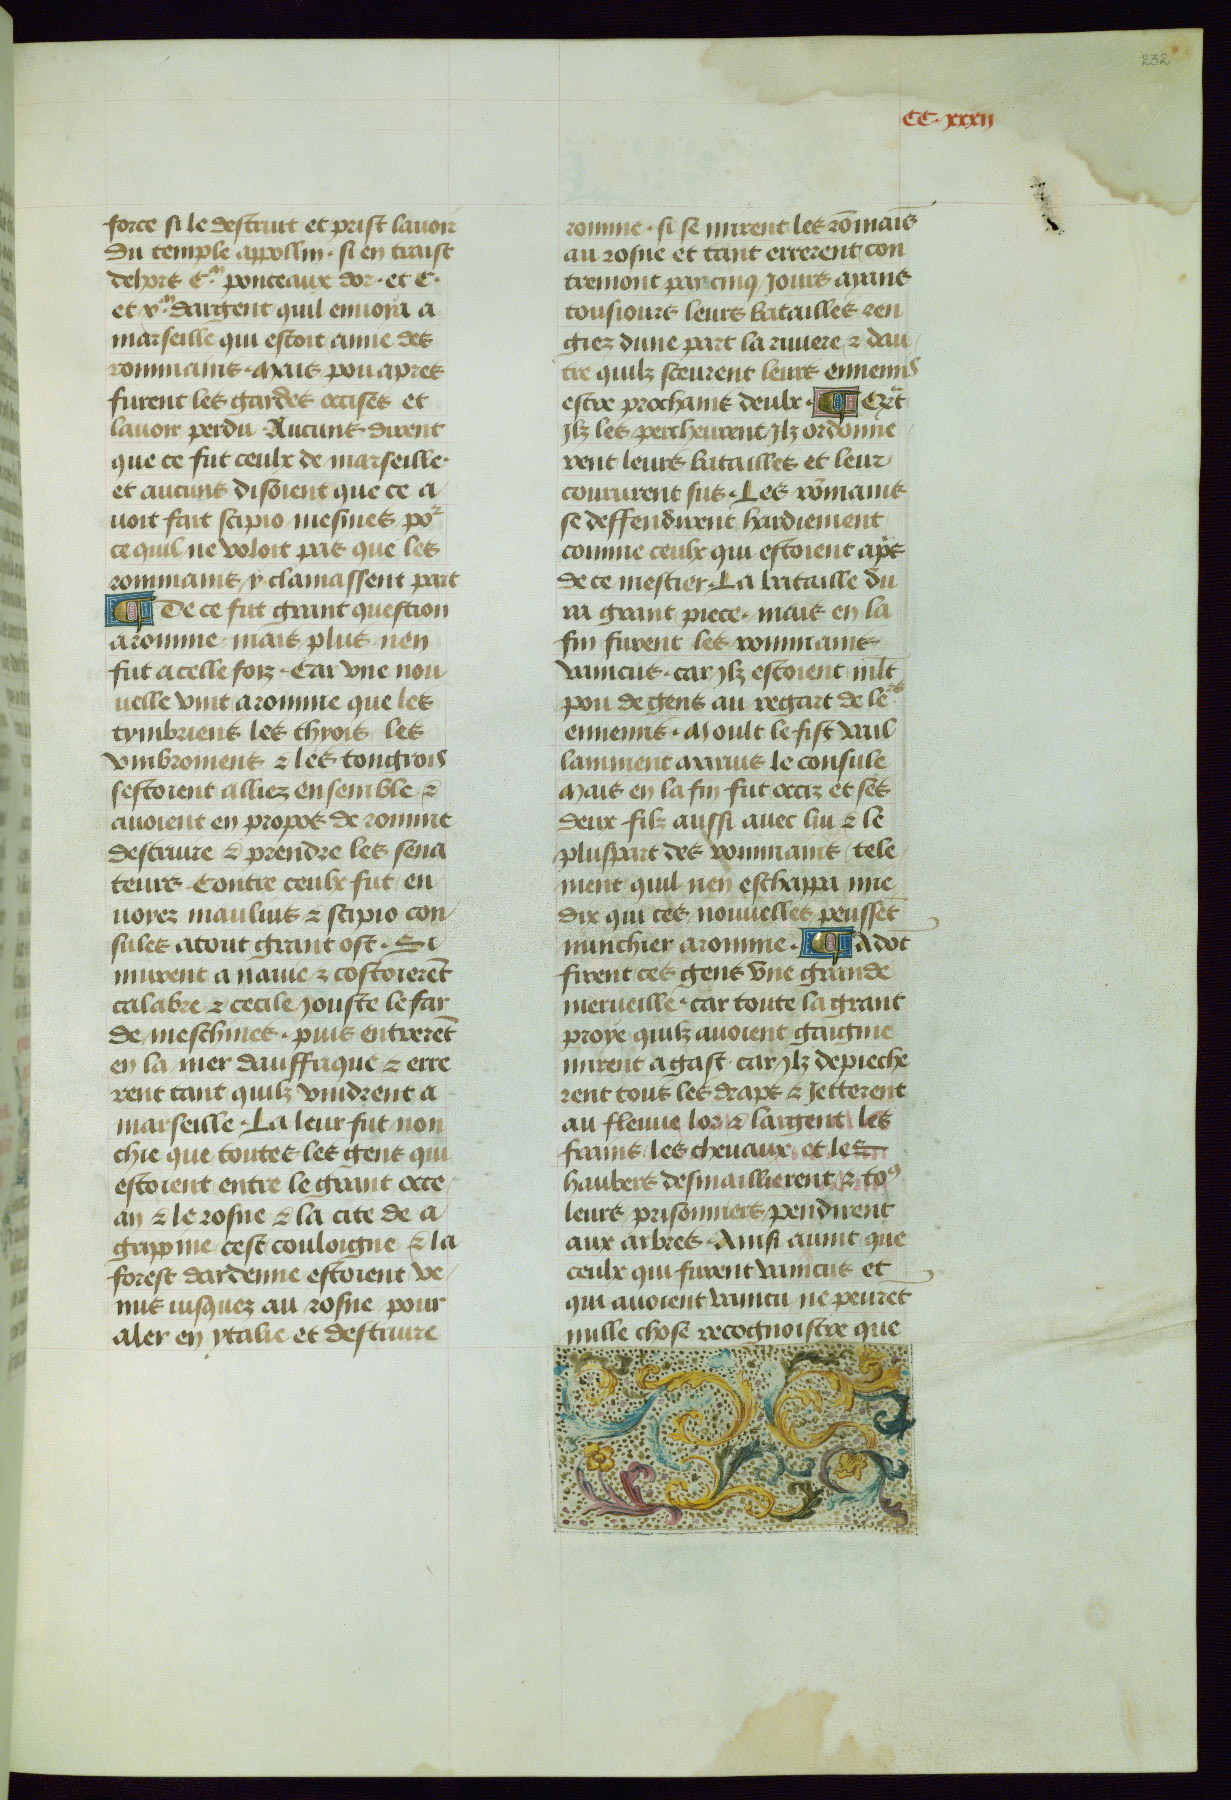 232
CC. xxxii
force si le destruit et prist lavoir
du temple appollin. si en traist
dehors C.m ponceaux dor. et C.
et v.m dargent quil envoya a
marseille qui estoit amie des
rommains. Mais pou apres
furent les gardes occises et
lavoir perdu. Aucuns dirent
que ce fut ceulx de marseille.
et aucuns disoient que ce a
voit fait scipio mesmes por
ce quil ne voloit pas que les
rommains y clamassent part
¶ De ce fut grant question
a romme mais plus nen
fut a celle foiz. Car une nou
velle vint a romme que les
tymbriens les thyois les
vmbroniens & les tongrois
sestoient alliez ensemble &
avoient en propos de romme
destruire & prendre les sena
teurs. Contre ceulx fut en
voyez maulius & scipio con
sules atout grant ost. Si
murent a navie & costoierent̄
calabre & cecile jouste le far
de meschines. puis entrerent̄
en la mer dauffrique & erre
rent tant quilz vindrent a
marseille. La leur fut non
chie que toutes les gens qui
estoient entre le grant occe
an & le rosne & la cite de a
grappine cest couloigne & la
forest dardenne estoient ve
nus jusquez au rosne pour
aler en ytalie et destruire
romme. si se mirent les rōmains
au rosne et tant errerent con
tremont par cinq jours ayans
tousjours leurs batailles ren
giez dune part la riviere & dau
tre quilz sceurent leurs ennemis
estre prochains deulx. ¶
Jlz les percheurent Jlz ordonne
rent leurs batailles et leur
coururent sus. Les rōmains
se deffendirent hardiement
comme ceulx qui estoient apš
de ce mestier. La bataille du
ra grant piece. mais en la
fin furent les rommains
vaincus. car Jlz estoient mlt̄
pou de gens au regart de lers
ennemis. Moult le fist vail
lamment marius le consule
Mais en la fin fut occiz et ses
deux filz aussi avec lui & le
pluspart des rommains tele
ment quil nen eschappa mie
dix qui ces nouvelles peussēt
nunchier a romme. ¶ Adōt
firent ces gens une grande
merveille. car toute la grant
proye quilz avoient gaignie
mirent a gast. car Jlz depieche
rent tous les draps & Jetterent
au fleuve lor & largent les
frains les chevaux et les
haubers desmaillierent & to9
leurs prisonniers pendirent
aux arbres. Ainsi avint que
ceulx qui furent vaincus et
qui avoient vaincu ne peurēt
nulle chose recognoistre que